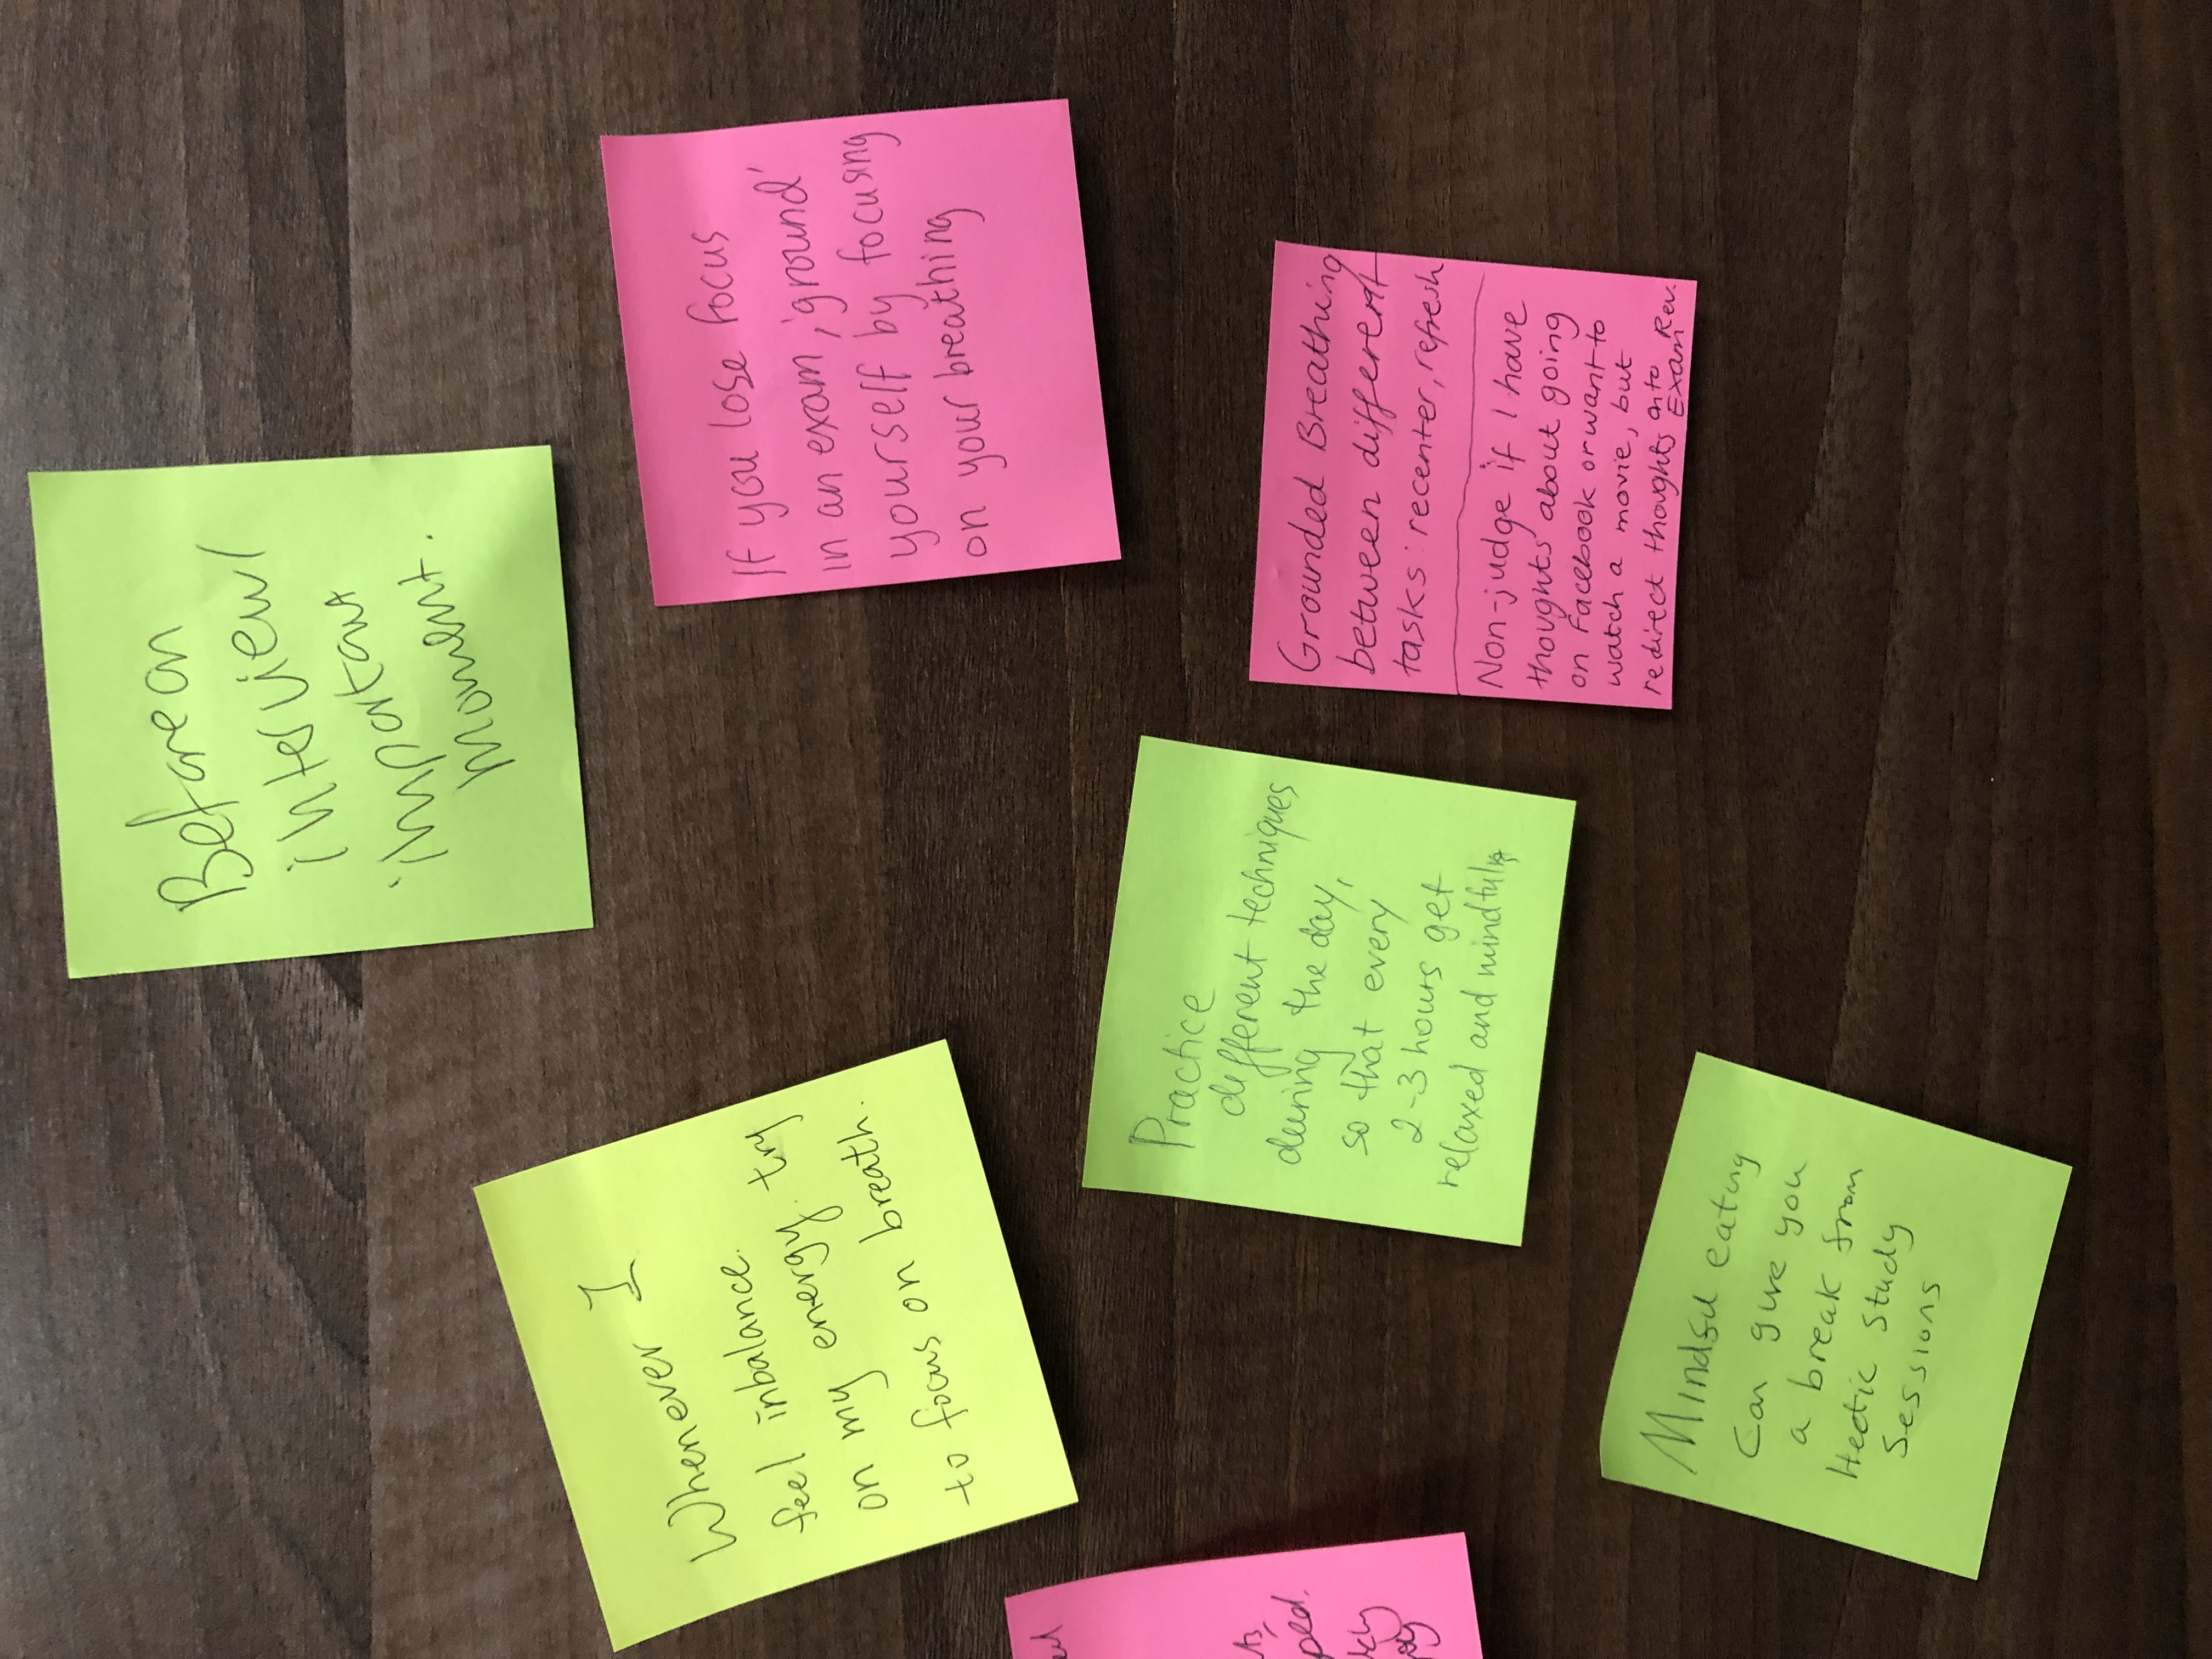 Before an
interview/
important
moment.
Whenever I
feel inbalance.
on my energy. try
to focus on breath.
If you lose focus
in an exam, 'ground'
yourself by focusing
on your breathing
Practice
different techniques
during the day,
so that every
2-3 hours get
relaxed and mindful
Grounded Breathing
between different
tasks: recenter, refresh
Non-judge if I have
thoughts about going
on Facebook or want to
watch a movie, but
redirect thoughts onto
Exam Rev.
Mindful eating
Can give you
a break from
Hectic Study
Sessions